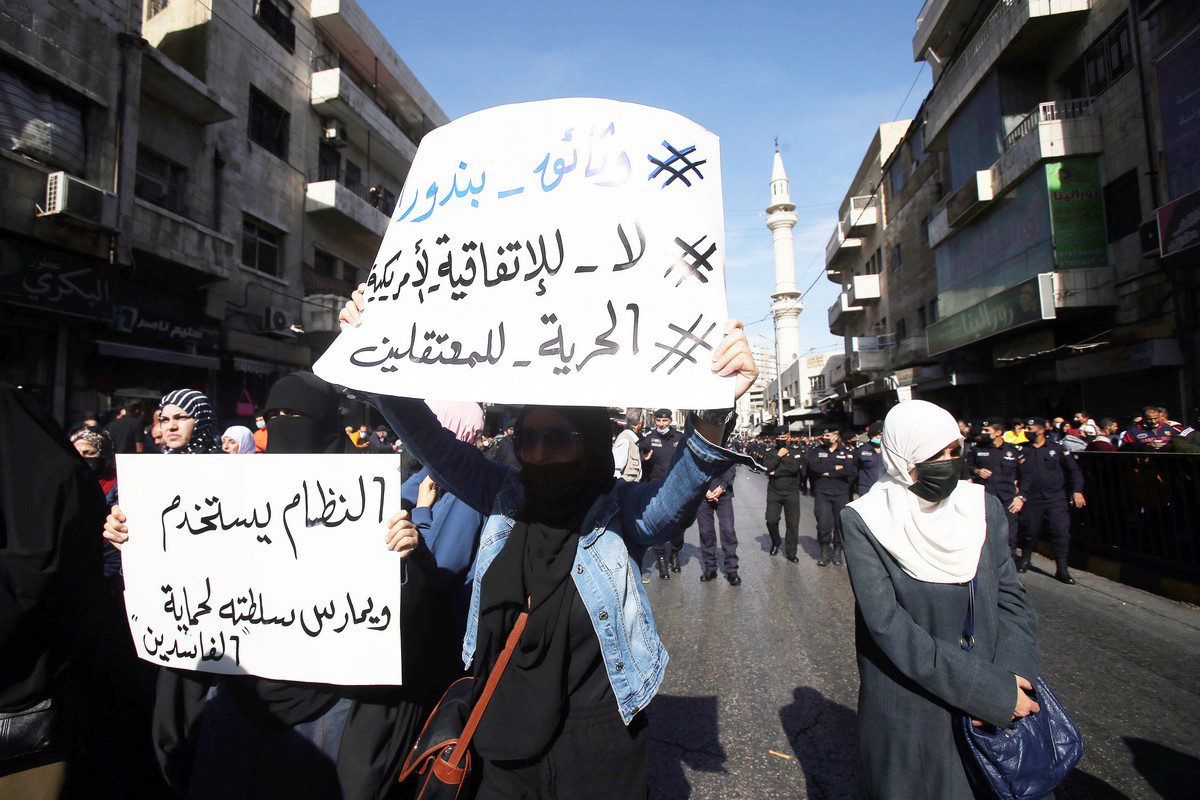 #وثائق_بندور
#لا_للإتفاقية_الأمريكية
#الحرية_للمعتقلين
النظام يستخدم
ويمارس سلطته لحماية
"الفاسدين"
البكري
سليم ناصر
روزالينا